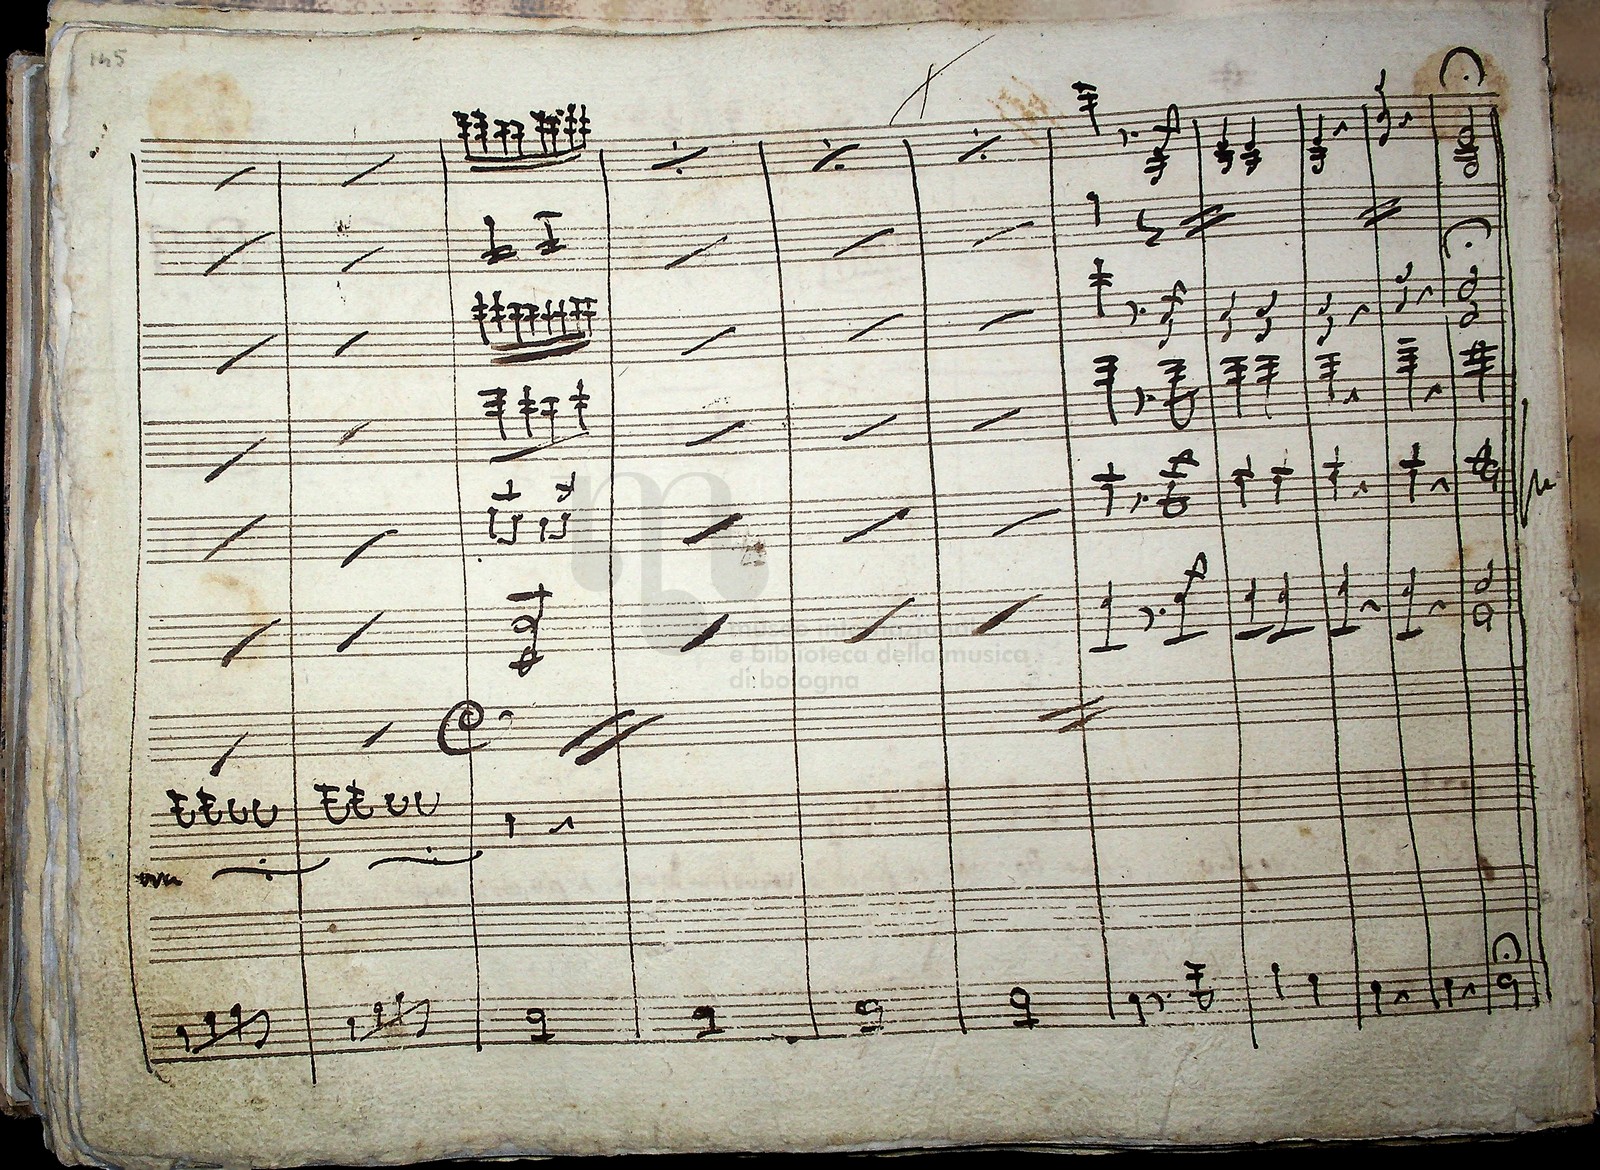 145
museo internazionale
e biblioteca della musica
di bologna